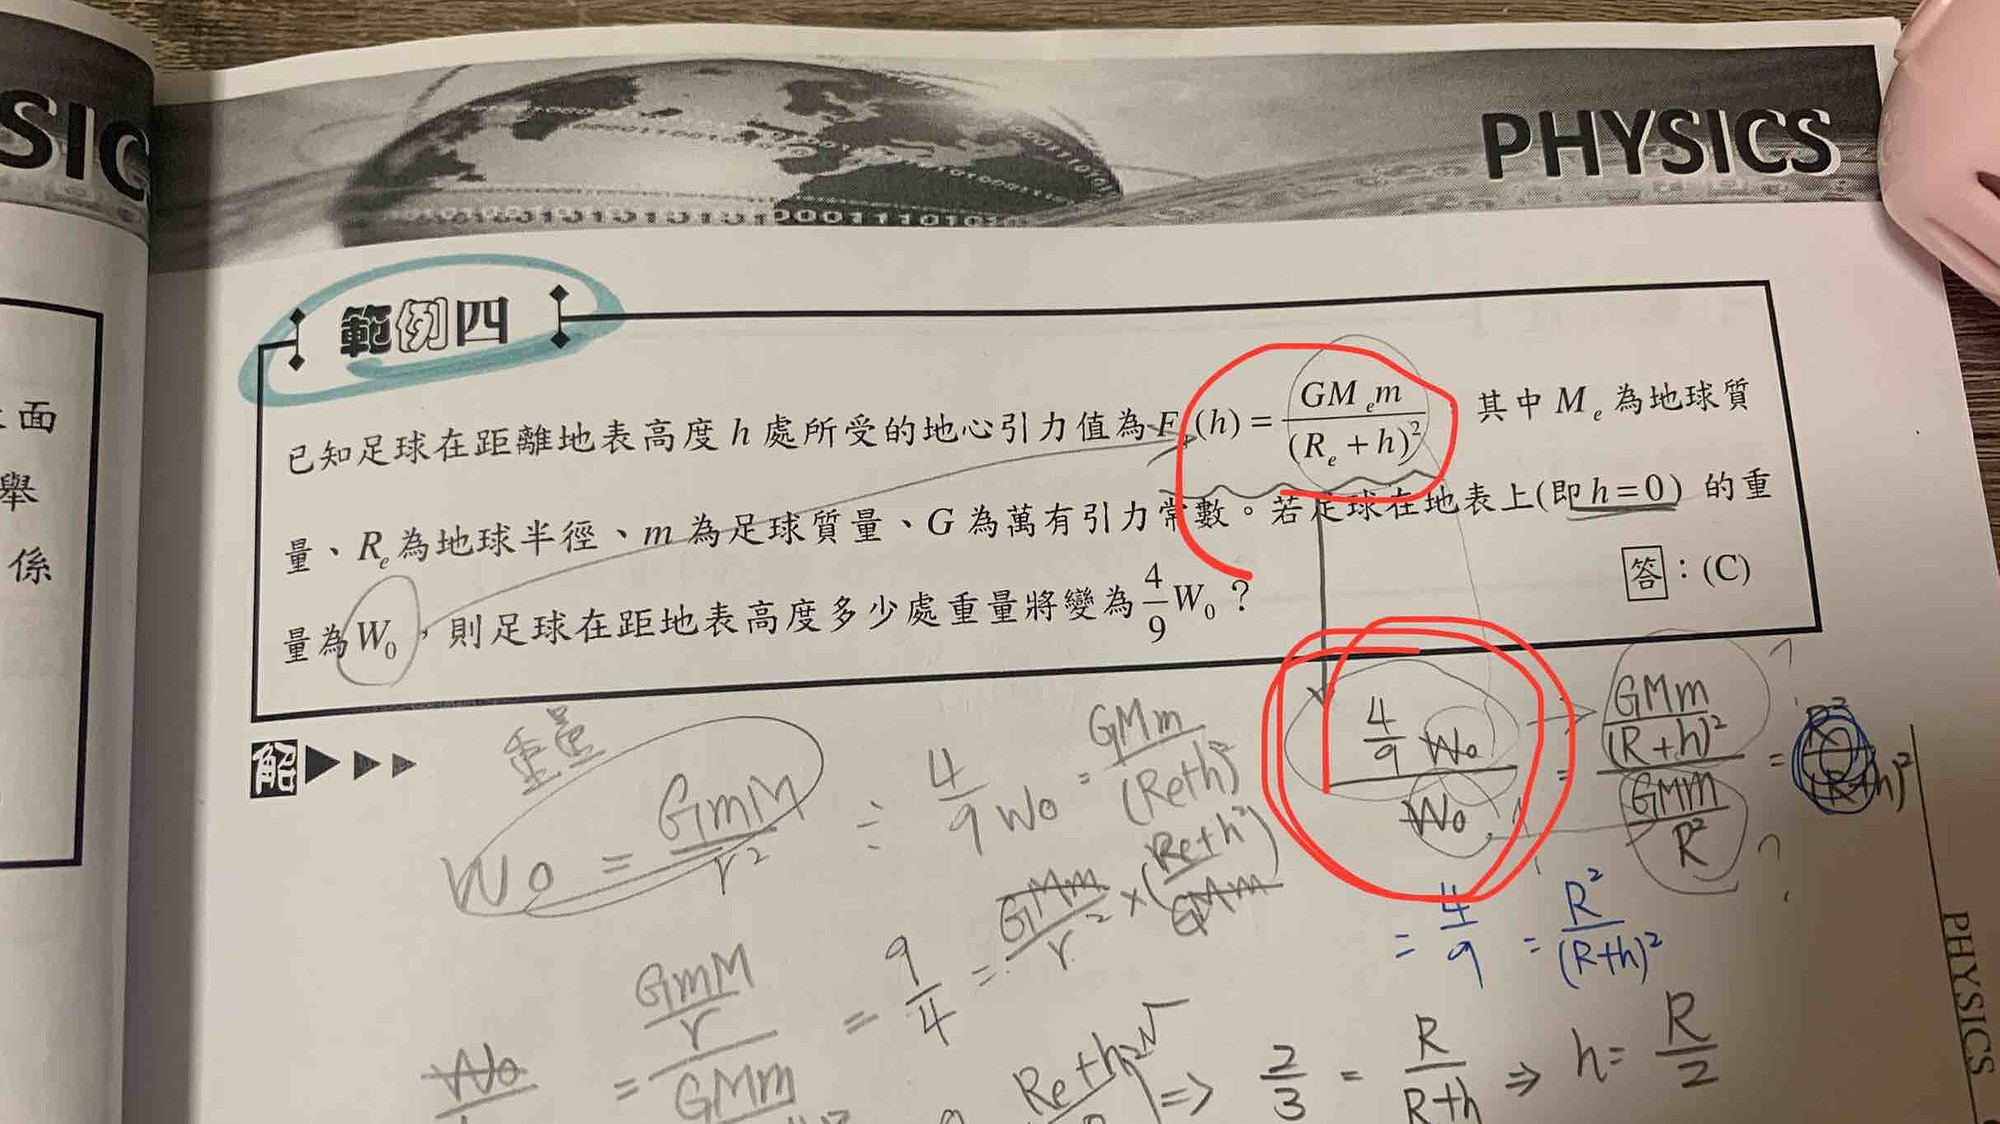 SIC
PHYSICS
範例四
面
舉
係
已知足球在距離地表高度 h 處所受的地心引力值為 F (h) = GM_e m / (R_e + h)²，其中 M_e 為地球質
量、R_e 為地球半徑、m 為足球質量、G 為萬有引力常數。若足球在地表上(即 h = 0) 的重
量為 W₀，則足球在距地表高度多少處重量將變為 4/9 W₀？
答：(C)
解
重量
W₀ = GmM / r²
4/9 W₀ = GMm / (Re+h)²
4/9 W₀ / W₀ = GMm/(R+h)² / GMm/R² =
= 4/9 = R² / (R+h)²
GmM / r / GMm = 9/4 = GMm / r² × (Re+h²) / GMm
W₀
Re+h
=> 2/3 = R / R+h => h = R/2
PHYSICS